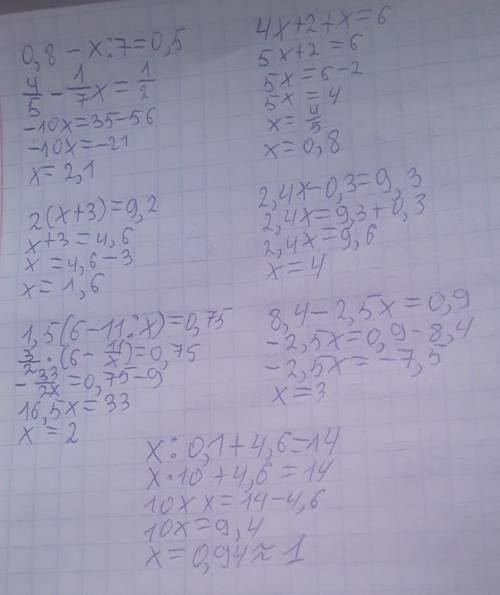 0,8 - x:7=0,5
4/5 - 1/7x = 1/2
-10x=35-56
-10x=-21
x=2,1
2(x+3)=9,2
x+3=4,6
x=4,6-3
x=1,6
1,5(6-11:x)=0,75
3/2·(6-11/x)=0,75
-33/2x=0,75-9
16,5x=33
x=2
4x+2+x=6
5x+2=6
5x=6-2
5x=4
x=4/5
x=0,8
2,4x-0,3=9,3
2,4x=9,3+0,3
2,4x=9,6
x=4
8,4-2,5x=0,9
-2,5x=0,9-8,4
-2,5x=-7,5
x=3
x:0,1+4,6=14
x·10+4,6=14
10x x=14-4,6
10x=9,4
x=0,94≈1